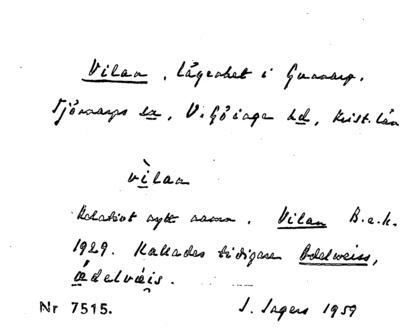 Vilan, lägenhet i Gunnarp,
Tjörnarps sn, V. Göinge hd, Krist. län
vìlan
Relativt nytt namn. Vilan B.e.k.
1929. Kallades tidigare Edelweiss,
ǽdelväis.
Nr 7515. J. Sagers 1959